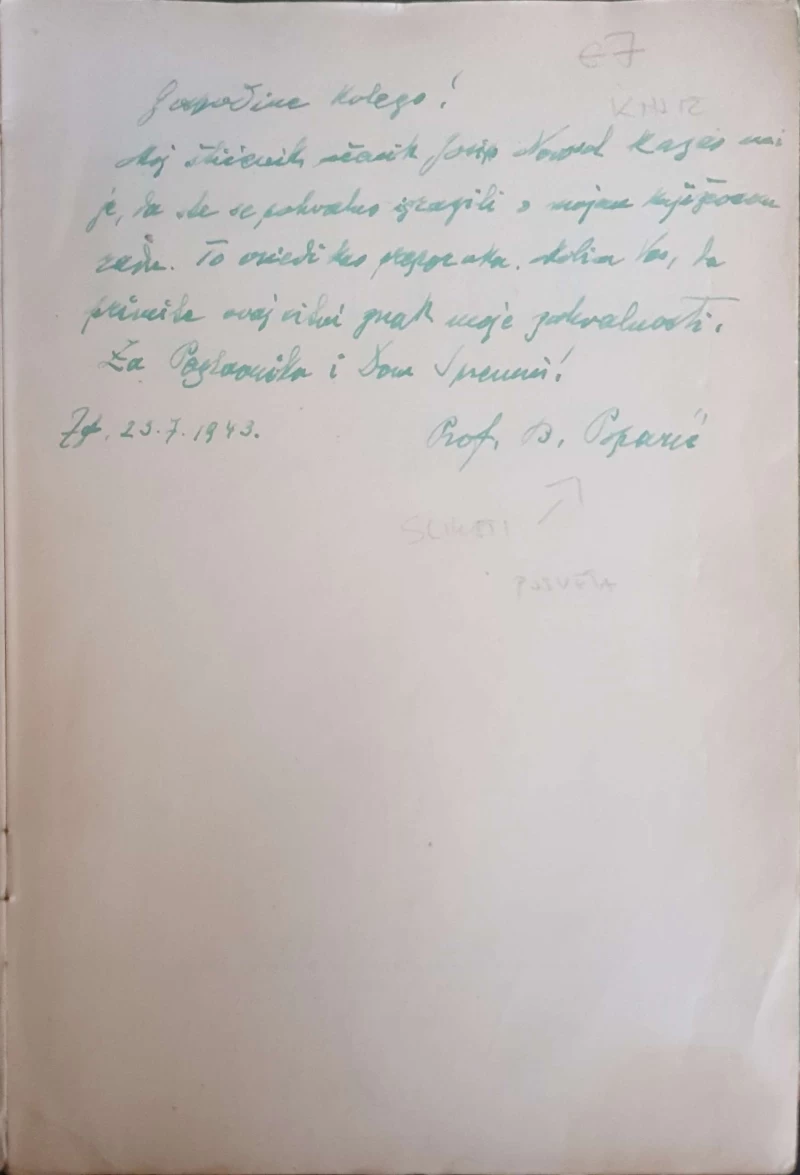 67
Gospodine kolego!
Moj štićenik učenik Josip Novosel kazao mi
je, da ste se pohvalno izrazili o mojem književnom
radu. To vriedi kao preporuka. Molim Vas, da
primite ovaj vidni znak moje zahvalnosti.
Za Poglavnika i Dom Spremni!
Zg. 23.7.1943.
Prof. B. Poparić
SLIKATI
POSVETA